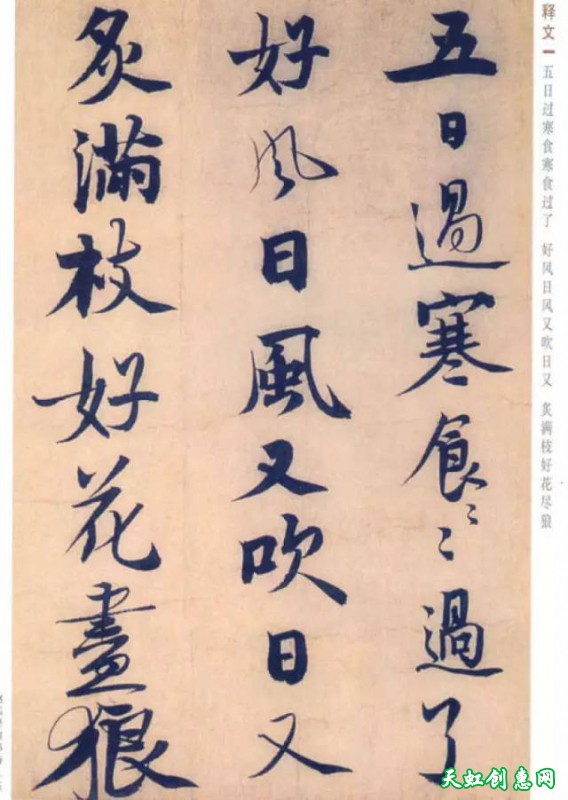 释文一 五日过寒食寒食过了 好风日风又吹日又 炙满枝好花尽狼
五日過寒食〻〻過了
好风日風又吹日又
炙滿枝好花盡狼
天虹创惠网